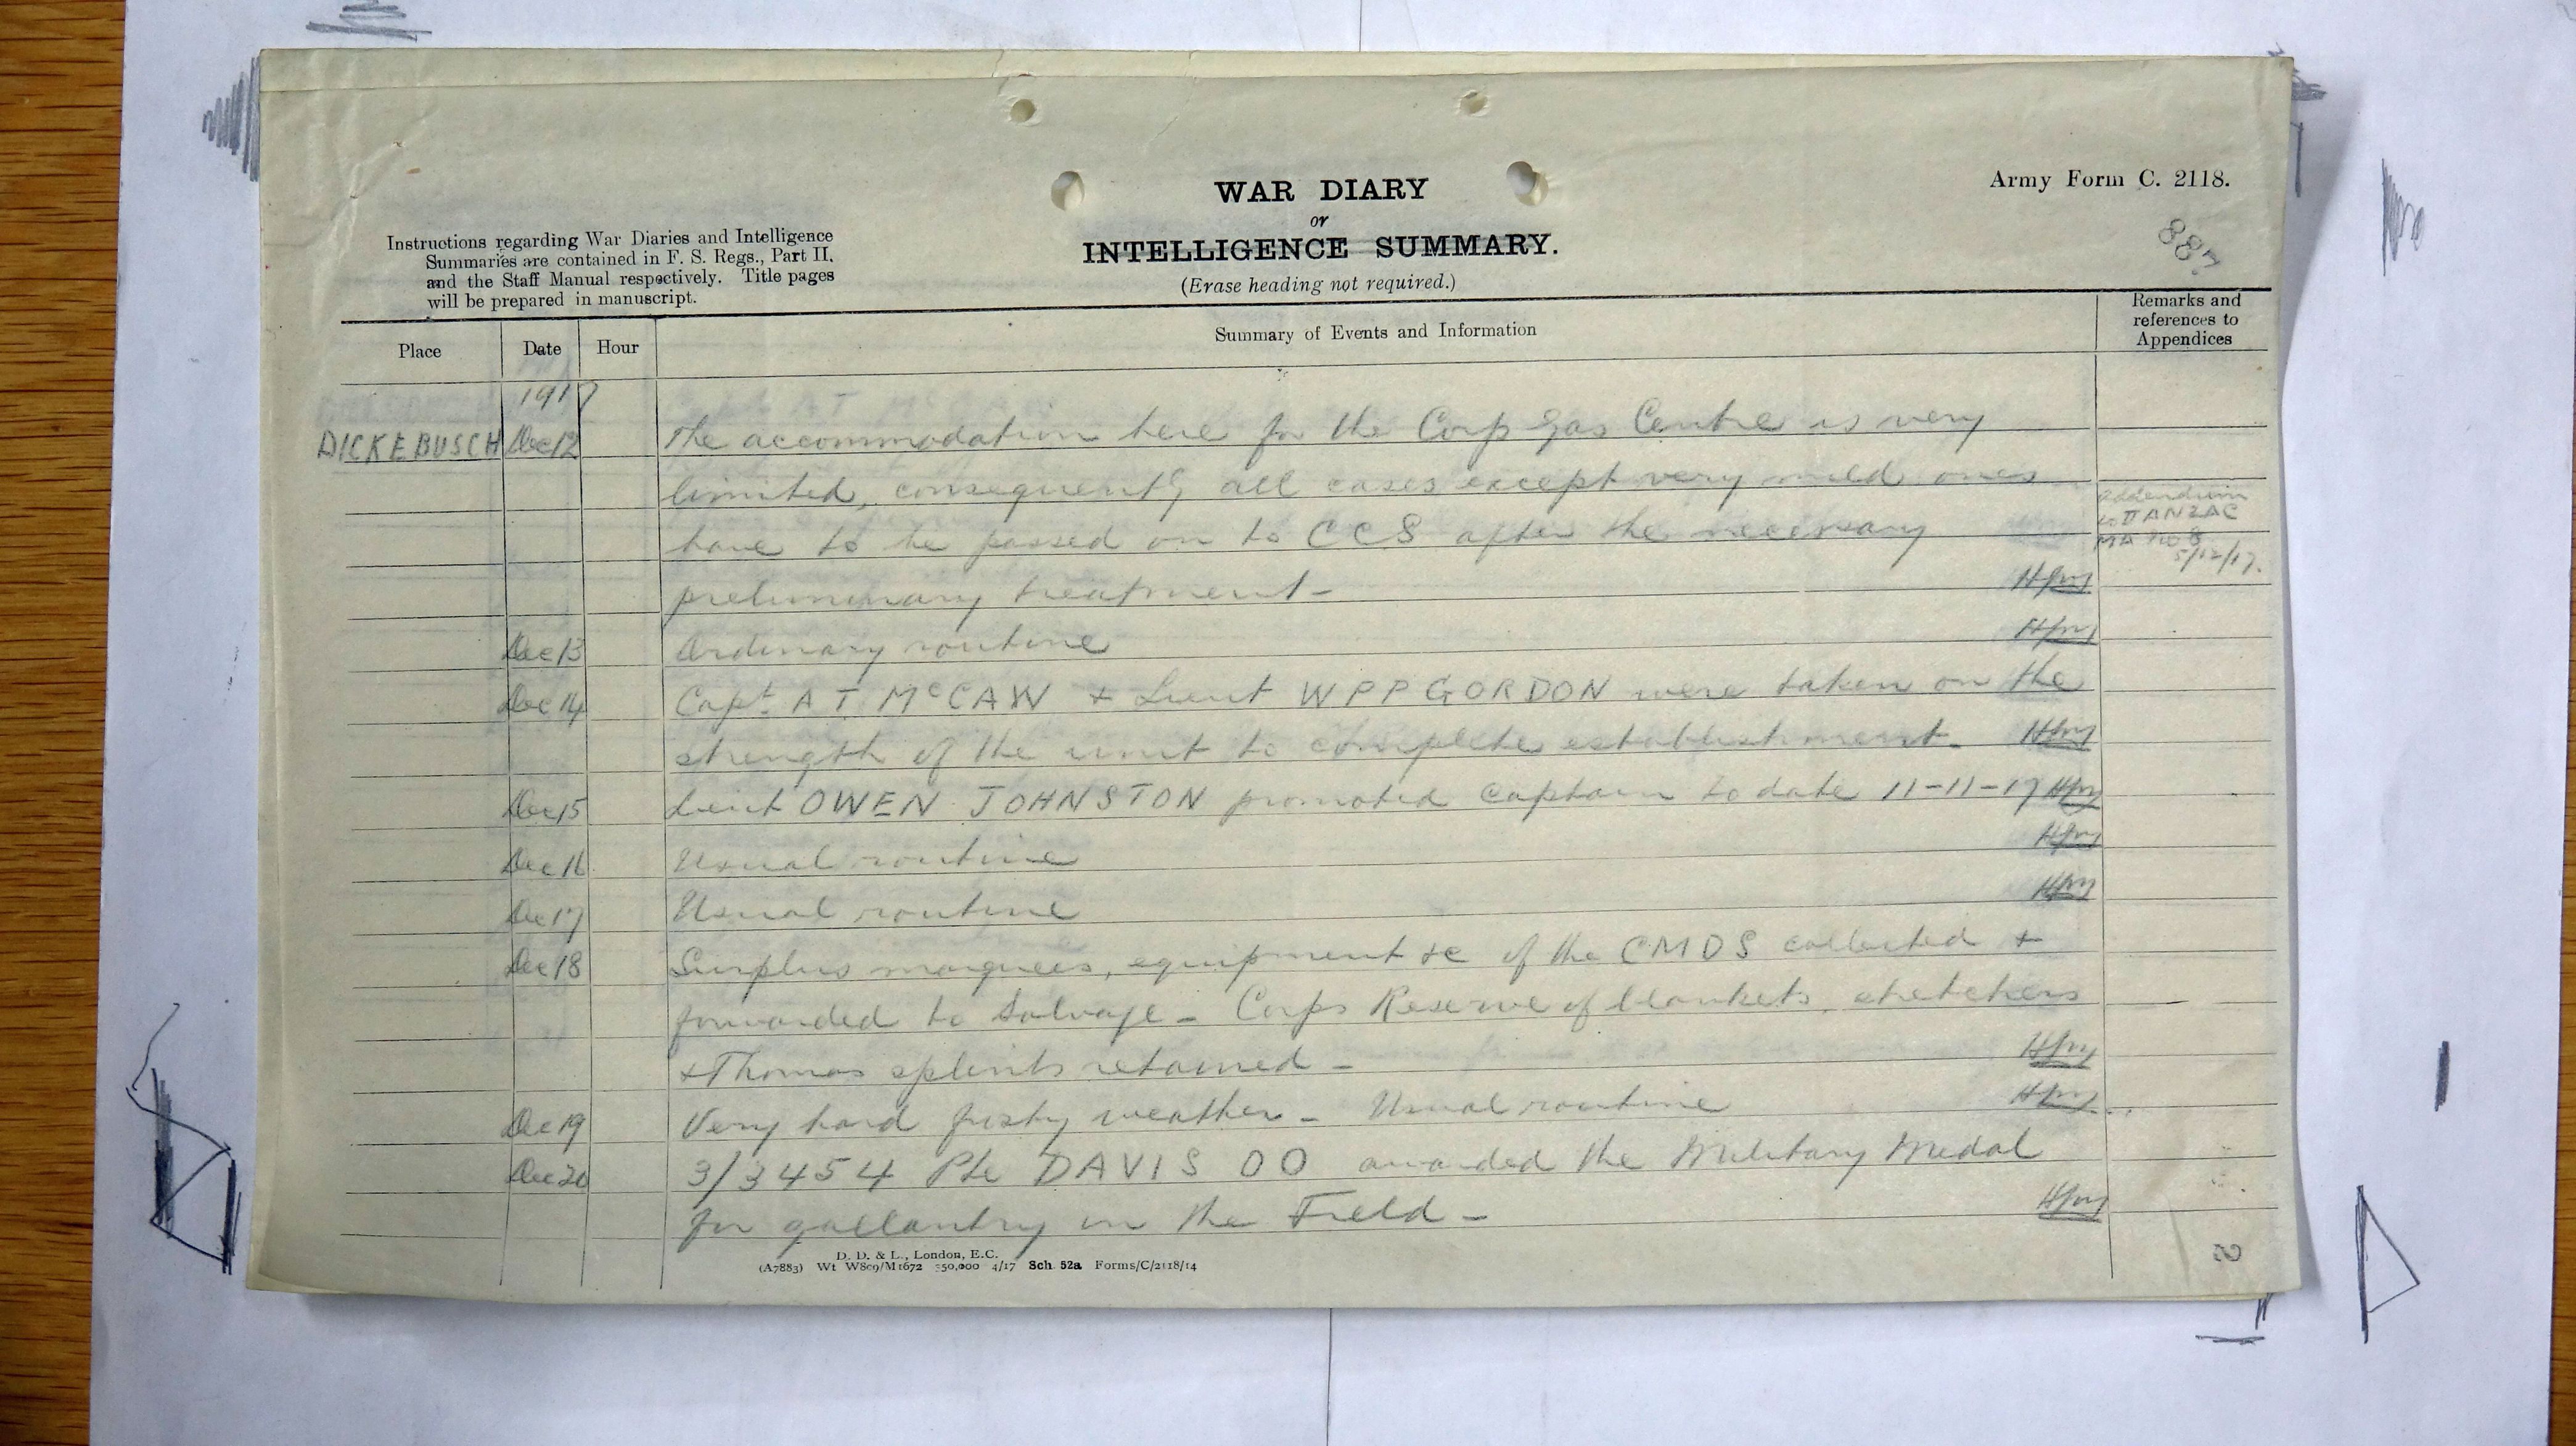 WAR DIARY
or
INTELLIGENCE SUMMARY.
(Erase heading not required.)
Army Form C. 2118.
887
Instructions regarding War Diaries and Intelligence
Summaries are contained in F. S. Regs., Part II.
and the Staff Manual respectively. Title pages
will be prepared in manuscript.
Place Date Hour Summary of Events and Information Remarks and
references to
Appendices
1917
DICKEBUSCH Dec 12 The accommodation here for the Corp Gas Centre is very
limited, consequently all cases except very mild ones
have to be passed on to CCS after the necessary
preliminary treatment -
addendum
to II ANZAC
MA No 8
5/12/17.
Dec 13 Ordinary routine
Dec 14 Capt. A T McCAW + Lieut W P P GORDON were taken on the
strength of the unit to complete establishment -
Dec 15 Lieut OWEN JOHNSTON promoted captain to date 11-11-17
Dec 16 Usual routine
Dec 17 Usual routine
Dec 18 Surplus marquees, equipment &c of the CMDS collected +
forwarded to Salvage - Corps Reserve of blankets, stretchers
+ Thomas splints retained -
Dec 19 Very hard frosty weather - Usual routine
Dec 20 3/3454 Pte DAVIS OO awarded the Military Medal
for gallantry in the Field -
D. D. & L., London, E.C.
(A7883) Wt W809/M1672 350,000 4/17 Sch. 52a Forms/C/2118/14